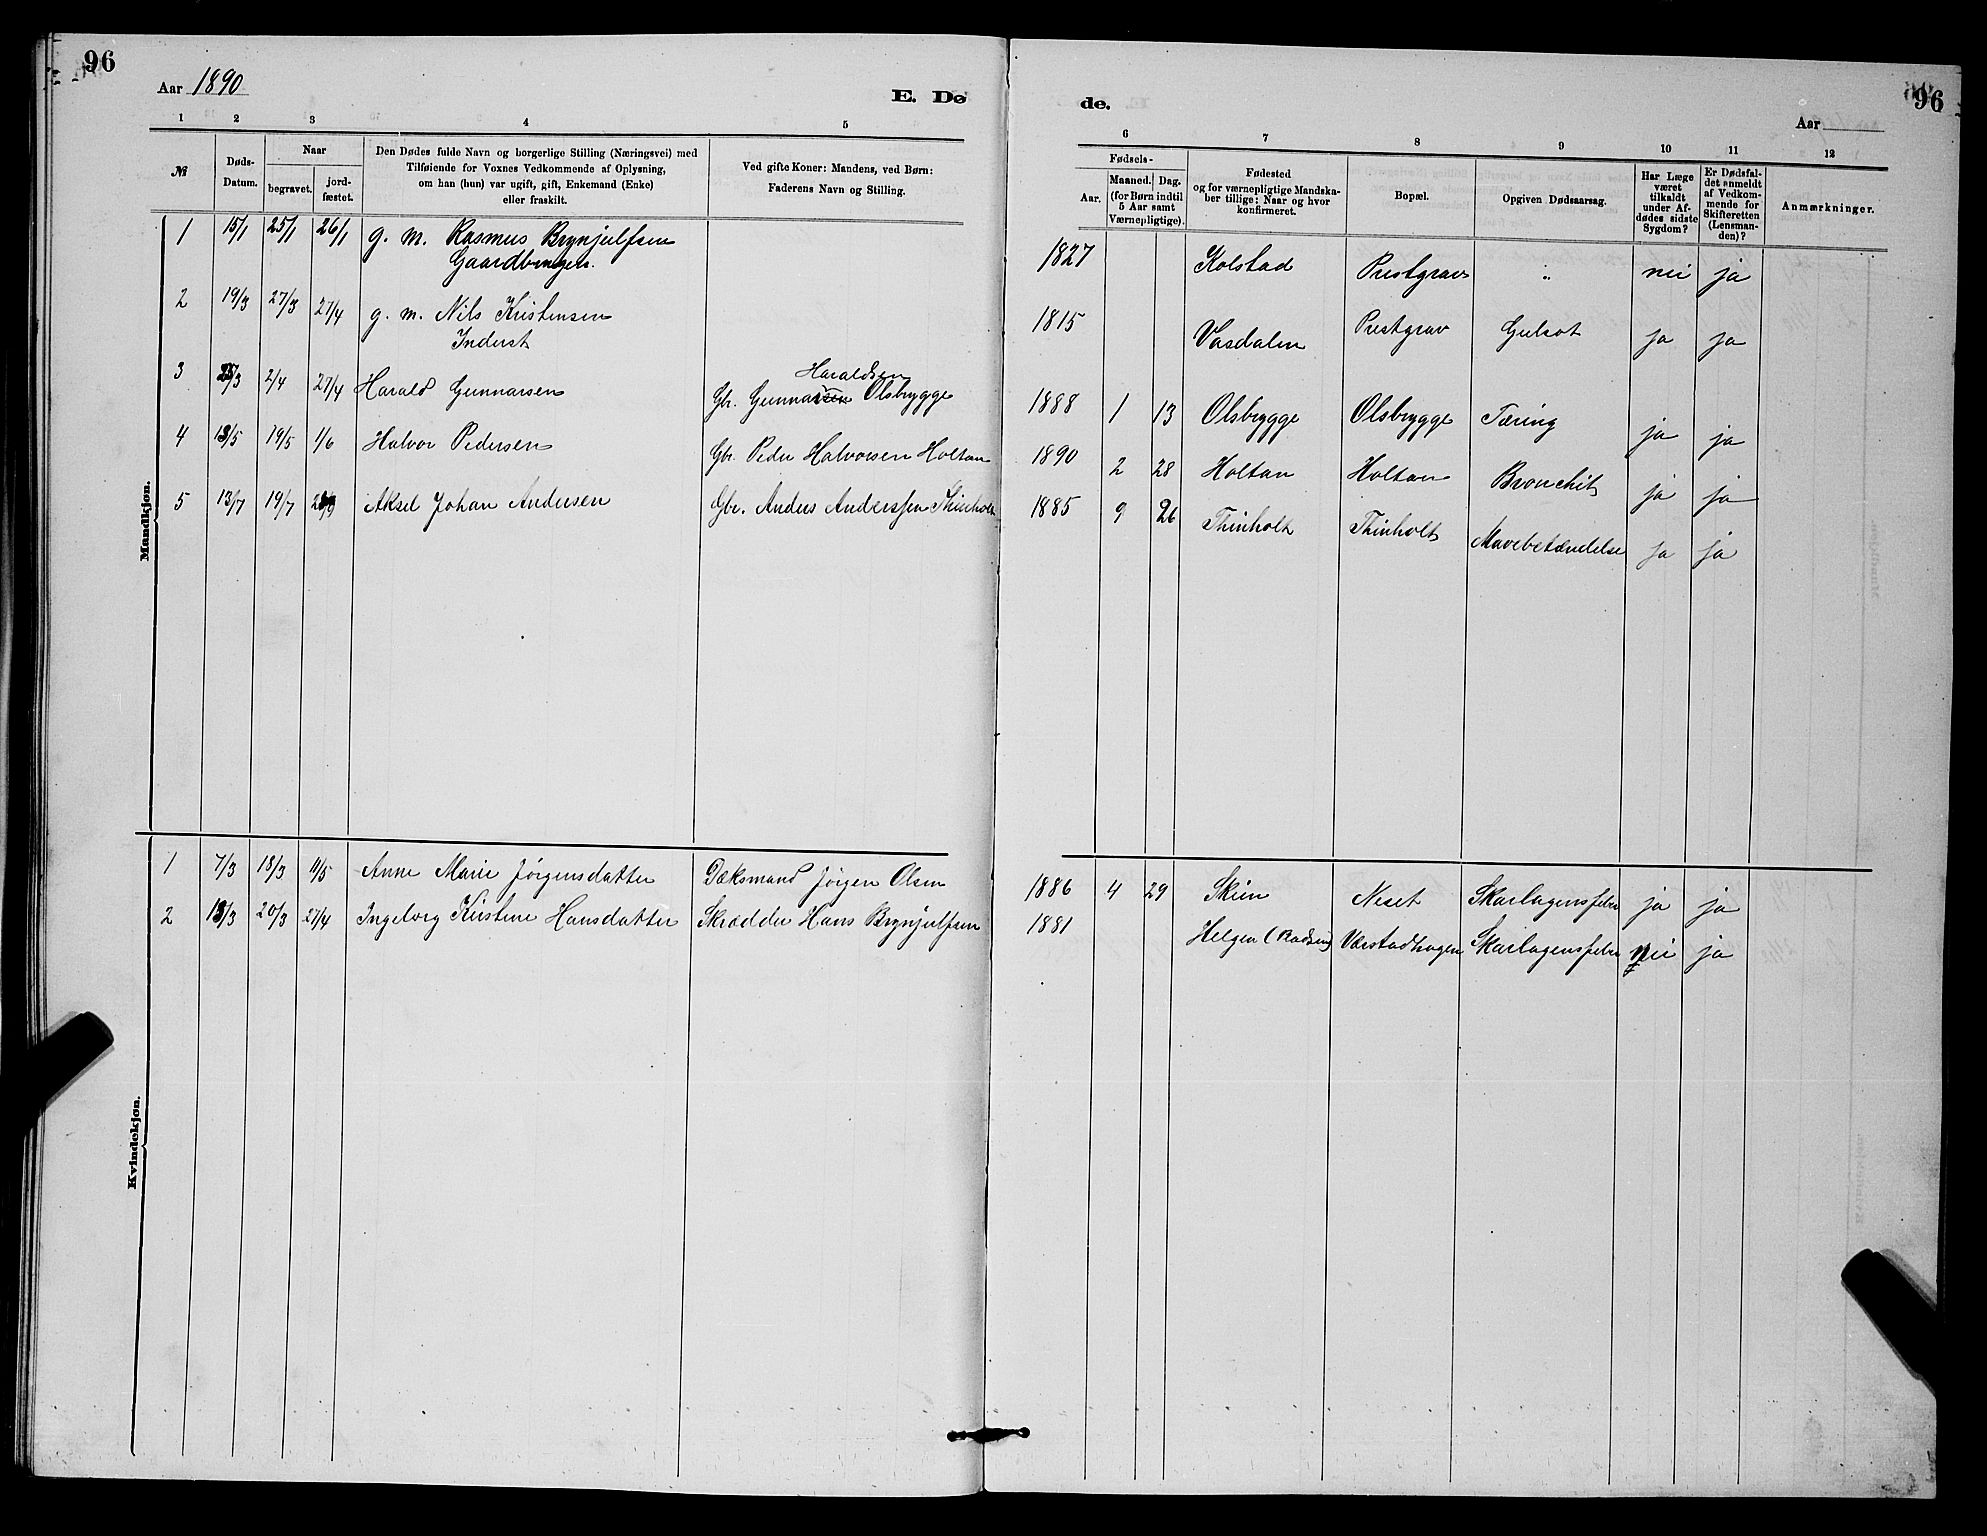 96
Aar 1890
E. Dø
1 2 3 4 5
№
Døds-
Datum.
Naar
begravet.
jord-
fæstet.
Den Dødes fulde Navn og borgerlige Stilling (Næringsvei) med
Tilføiende for Voxnes Vedkommende af Oplysning,
om han (hun) var ugift, gift, Enkemand (Enke)
eller fraskilt.
Ved gifte Koner: Mandens, ved Børn:
Faderens Navn og Stilling.
Mandkjøn.
1 15/1 25/1 26/1 g. m. Rasmus Brynjulfsen
Gaardbruger.
2 19/3 27/3 27/4 g. m. Nils Kristensen
Inderst
Haraldsen
3 25/3 2/4 27/4 Harald Gunnarsen Gbr. Gunnarsen Olsbrygge
4 13/5 19/5 1/6 Halvor Pedersen Gbr. Peder Halvorsen Holtan
5 13/7 19/7 Aksel Johan Andersen Gbr. Anders Anderssen Thinholt
Kvindekjøn.
1 7/3 18/3 11/5 Anne Marie Jörgensdatter Dæksmand Jörgen Olsen
2 13/3 20/3 27/4 Ingeborg Kristine Hansdatter Skrædder Hans Brynjulfsen
de.
Aar
96
6 7 8 9 10 11 12
Fødsels-
Aar.
Maaned. Dag.
(for Børn indtil
5 Aar samt
Værnepligtige).
Fødested
og for værnepligtige Mandska-
ber tillige: Naar og hvor
konfirmeret.
Bopæl.
Opgiven Dødsaarsag.
Har Læge
været
tilkaldt
under Af-
dødes sidste
Sygdom?
Er Dødsfal-
det anmeldt
af Vedkom-
mende for
Skifteretten
(Lensman-
den)?
Anmærkninger.
1827 Kolstad Prestgrav " nei ja
1815 Vasdalen Prestgrav Gulsot ja ja
1888 1 13 Olsbrygge Olsbrygge Tæring ja ja
1890 2 28 Holtan Holtan Bronchit ja ja
1885 9 26 Thinholt Thinholt Mavebetændelse ja ja
1886 4 29 Skien Neset Skarlagensfeber ja ja
1881 Helgen Værstadhagen Skarlagensfeber nei ja